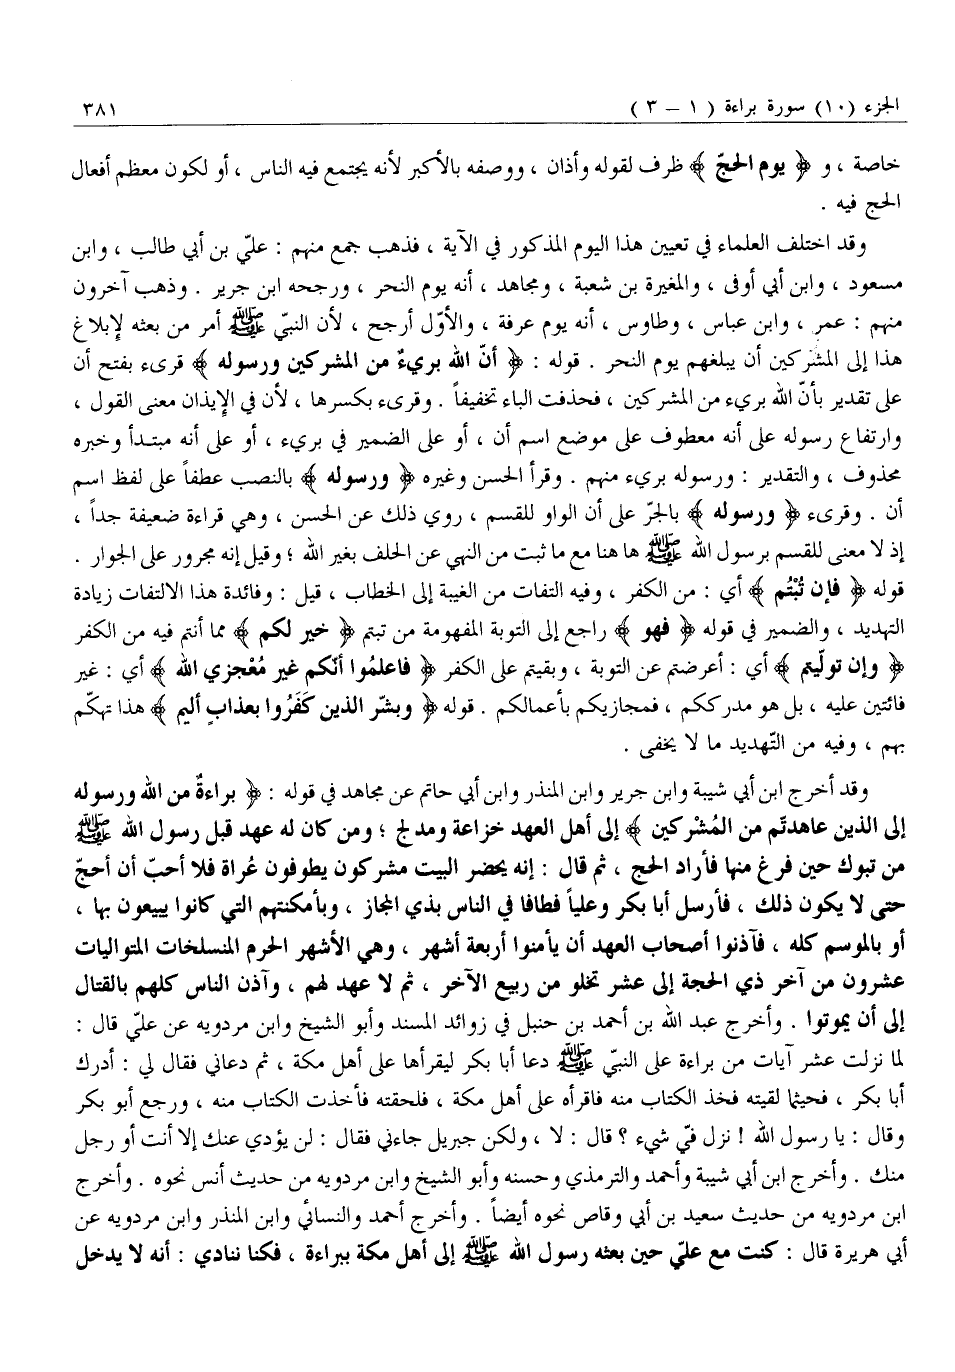 الجزء (١٠) سورة براءة ( ١ – ٣ ) ٣٨١
خاصة ، و ﴿ يوم الحجّ ﴾ ظرف لقوله وأذان ، ووصفه بالأكبر لأنه يجتمع فيه الناس ، أو لكون معظم أفعال
الحج فيه .
وقد اختلف العلماء في تعيين هذا اليوم المذكور في الآية ، فذهب جمع منهم : عليّ بن أبي طالب ، وابن
مسعود ، وابن أبي أوفى ، والمغيرة بن شعبة ، ومجاهد ، أنه يوم النحر ، ورجحه ابن جرير . وذهب آخرون
منهم : عمر ، وابن عباس ، وطاوس ، أنه يوم عرفة ، والأوّل أرجح ، لأن النبيّ ﷺ أمر من بعثه لإبلاغ
هذا إلى المشركين أن يبلغهم يوم النحر . قوله : ﴿ أنّ الله بريءٌ من المشركين ورسوله ﴾ قرىء بفتح أن
على تقدير بأنّ الله بريء من المشركين ، فحذفت الباء تخفيفاً . وقرىء بكسرها ، لأن في الإيذان معنى القول ،
وارتفاع رسوله على أنه معطوف على موضع اسم أن ، أو على الضمير في بريء ، أو على أنه مبتدأ وخبره
محذوف ، والتقدير : ورسوله بريء منهم . وقرأ الحسن وغيره ﴿ ورسوله ﴾ بالنصب عطفاً على لفظ اسم
أن . وقرىء ﴿ ورسوله ﴾ بالجرّ على أن الواو للقسم ، روي ذلك عن الحسن ، وهي قراءة ضعيفة جداً ،
إذ لا معنى للقسم برسول الله ﷺ ها هنا مع ما ثبت من النهي عن الحلف بغير الله ؛ وقيل إنه مجرور على الجوار .
قوله ﴿ فإن تُبْتُم ﴾ أي : من الكفر ، وفيه التفات من الغيبة إلى الخطاب ، قيل : وفائدة هذا الالتفات زيادة
التهديد ، والضمير في قوله ﴿ فهو ﴾ راجع إلى التوبة المفهومة من تبتم ﴿ خير لكم ﴾ مما أنتم فيه من الكفر
﴿ وإن تولّيتم ﴾ أي : أعرضتم عن التوبة ، وبقيتم على الكفر ﴿ فاعلمُوا أنّكم غير مُعْجزي الله ﴾ أي : غير
فائتين عليه ، بل هو مدرككم ، فمجازيكم بأعمالكم . قوله ﴿ وبشّر الذين كَفَرُوا بعذابٍ أليم ﴾ هذا تهكّم
بهم ، وفيه من التّهديد ما لا يخفى .
وقد أخرج ابن أبي شيبة وابن جرير وابن المنذر وابن أبي حاتم عن مجاهد في قوله : ﴿ براءةٌ من الله ورسوله
إلى الذين عاهدتَم من المُشْركين ﴾ إلى أهل العهد خزاعة ومدلج ؛ ومن كان له عهد قبل رسول الله ﷺ
من تبوك حين فرغ منها فأراد الحج ، ثم قال : إنه يحضر البيت مشركون يطوفون عُراة فلا أحبّ أن أحجّ
حتى لا يكون ذلك ، فأرسل أبا بكر وعلياً فطافا في الناس بذي المجاز ، وبأمكنتهم التي كانوا يبيعون بها ،
أو بالموسم كله ، فآذنوا أصحاب العهد أن يأمنوا أربعة أشهر ، وهي الأشهر الحرم المنسلخات المتواليات
عشرون من آخر ذي الحجة إلى عشر تخلو من ربيع الآخر ، ثم لا عهد لهم ، وآذن الناس كلهم بالقتال
إلى أن يموتوا . وأخرج عبد الله بن أحمد بن حنبل في زوائد المسند وأبو الشيخ وابن مردويه عن عليّ قال :
لما نزلت عشر آيات من براءة على النبيّ ﷺ دعا أبا بكر ليقرأها على أهل مكة ، ثم دعاني فقال لي : أدرك
أبا بكر ، فحيثما لقيته فخذ الكتاب منه فاقرأه على أهل مكة ، فلحقته فأخذت الكتاب منه ، ورجع أبو بكر
وقال : يا رسول الله ! نزل فيّ شيء ؟ قال : لا ، ولكن جبريل جاءني فقال : لن يؤدي عنك إلا أنت أو رجل
منك . وأخرج ابن أبي شيبة وأحمد والترمذي وحسنه وأبو الشيخ وابن مردويه من حديث أنس نحوه . وأخرج
ابن مردويه من حديث سعيد بن أبي وقاص نحوه أيضاً . وأخرج أحمد والنسائي وابن المنذر وابن مردويه عن
أبي هريرة قال : كنت مع عليّ حين بعثه رسول الله ﷺ إلى أهل مكة ببراءة ، فكنا ننادي : أنه لا يدخل